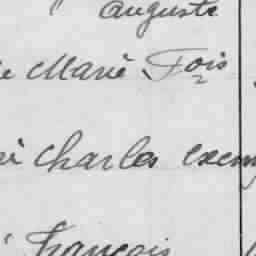 auguste
Marie Fois
Charles exem
François